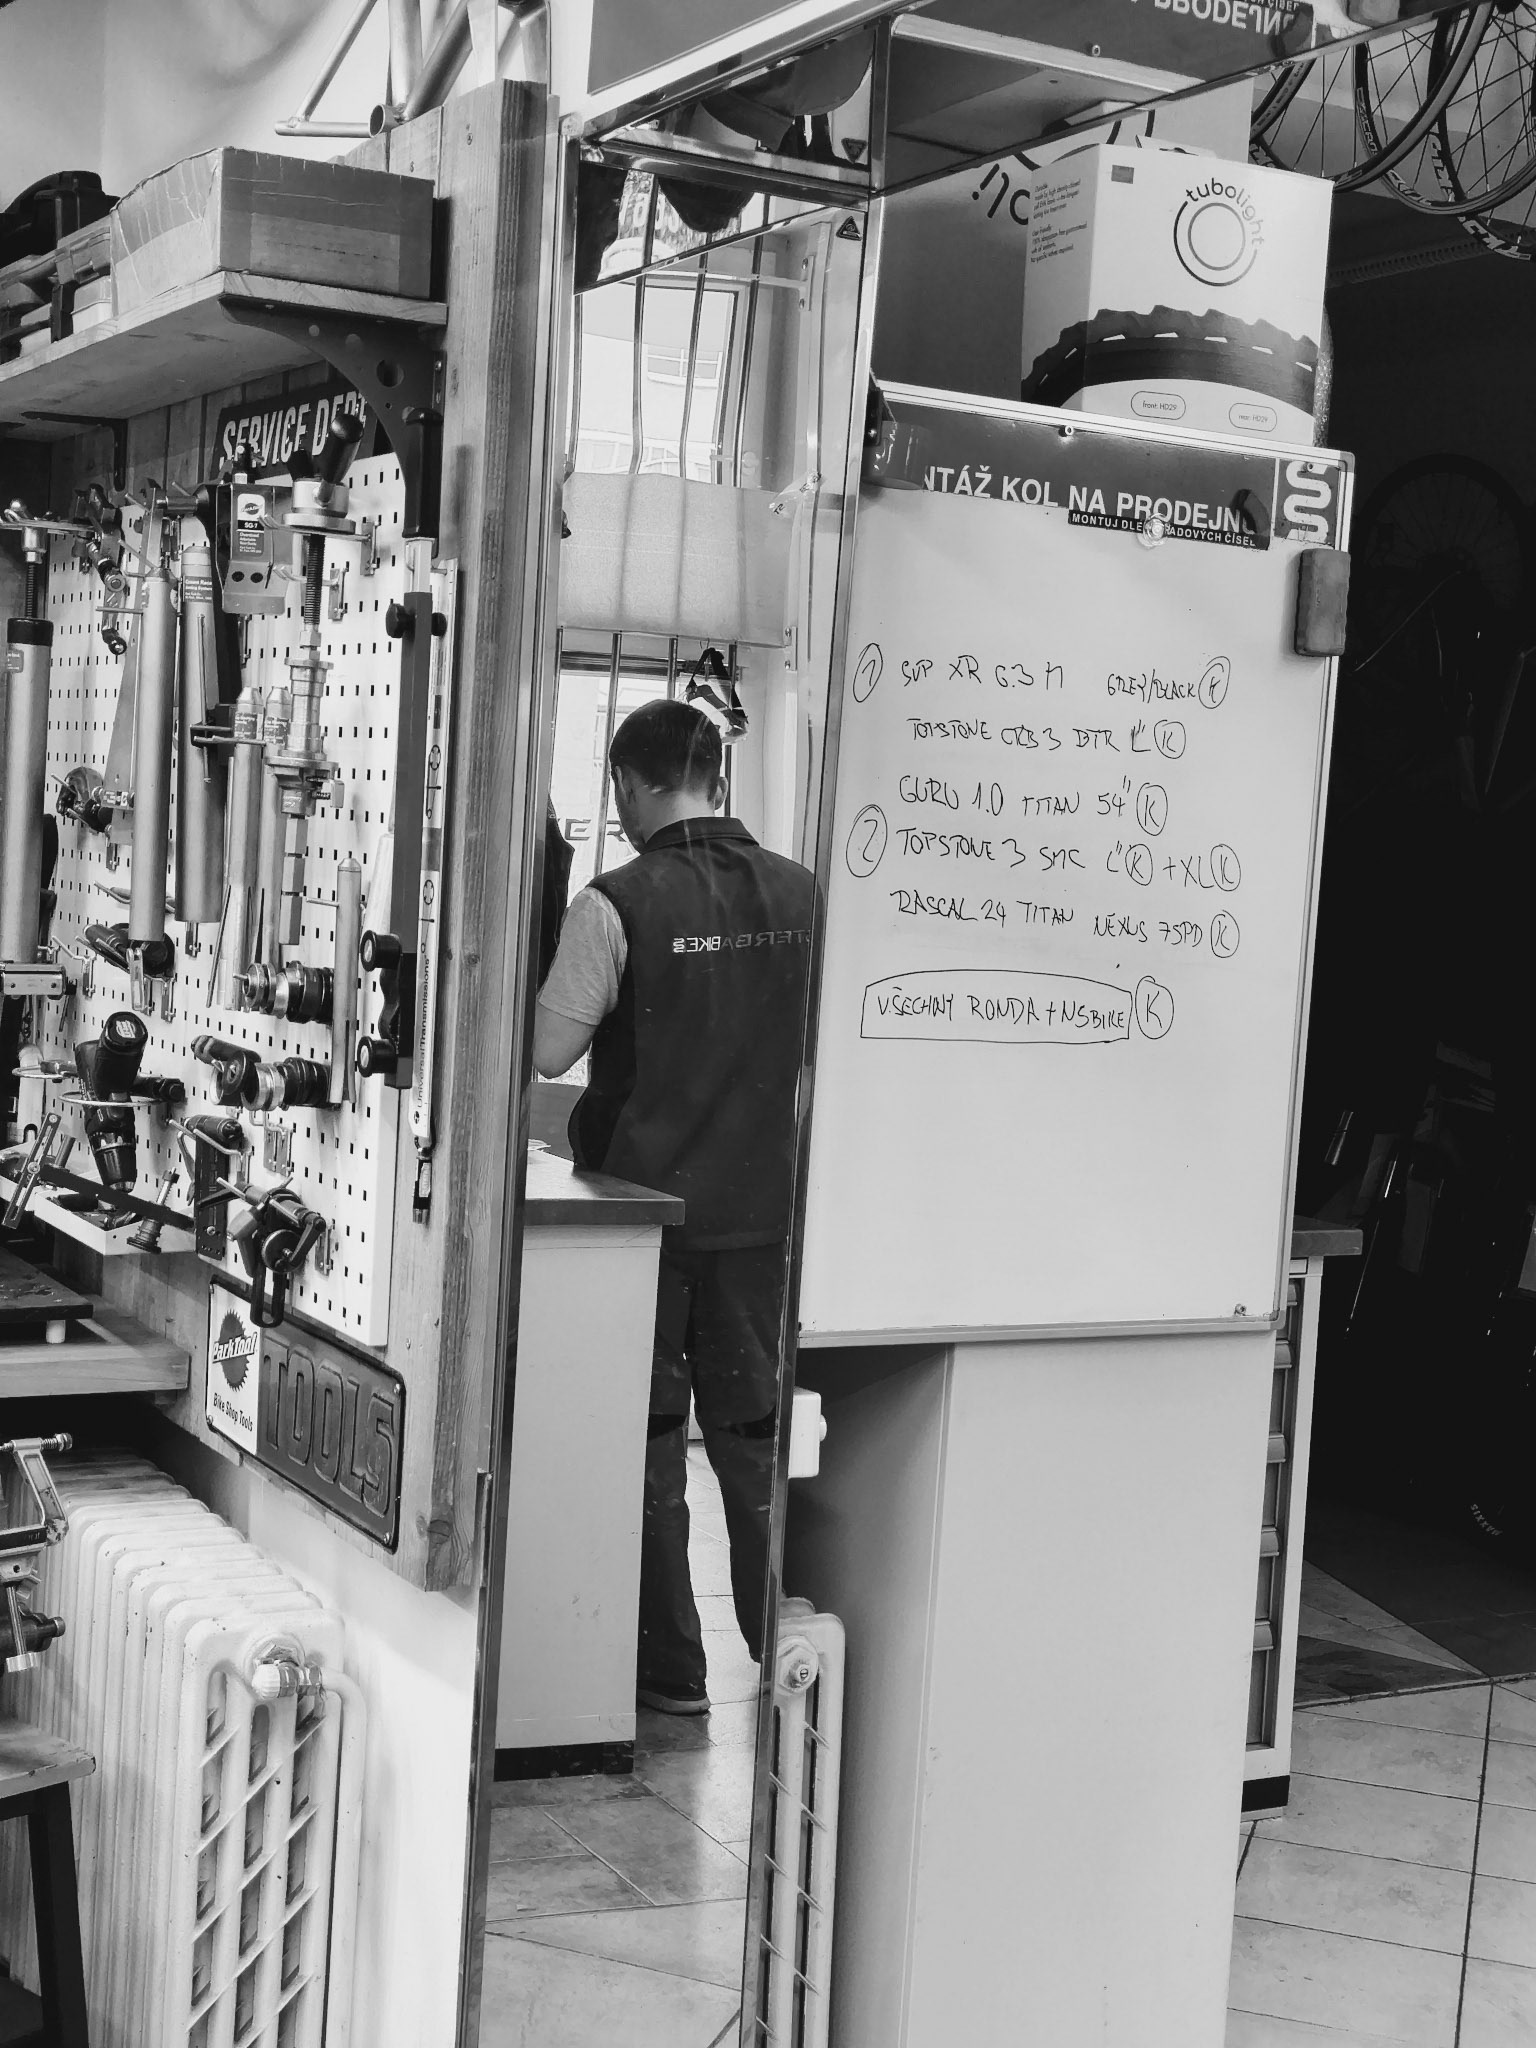 PRODEJNĚ
tubolight
front: HD29
rear: HD29
SERVICE DEPT
SG-7
NTÁŽ KOL NA PRODEJNĚ
MONTUJ DLE ŘADOVÝCH ČÍSEL
① SUP XR 6.3 M GREY/BLACK Ⓚ
TOPSTONE CRB 3 BTR L" Ⓚ
GURU 1.0 TITAN 54" Ⓚ
② TOPSTONE 3 SMC L" Ⓚ + XL Ⓚ
RASCAL 24 TITAN NEXUS 7SPD Ⓚ
VŠECHNY RONDA + NSBIKE Ⓚ
STERBABIKE
Universal Transmissions
ParkTool
Bike Shop Tools
TOOLS
MAXXIS